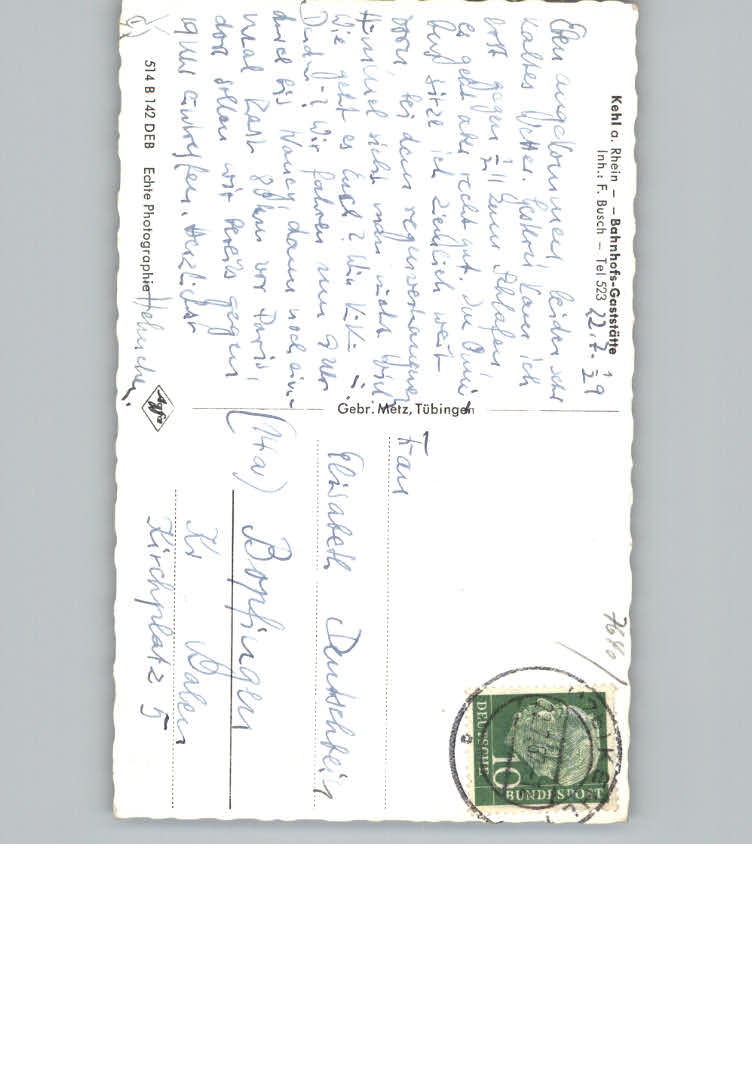 Kehl a. Rhein – – Bahnhofs-Gaststätte
Inh.: F. Busch – Tel 523
22.7.
Eben angekommen, leider sehr
kaltes Wetter. Gestern kam ich
erst gegen zum Schlafen,
es geht aber recht gut. Im
Bus sitze ich ziemlich weit
vorn bei dem regenverhangenen
Himmel sieht man nicht viel.
Wie geht es Euch? Wie
Wir fahren um 9 Uhr
durch bis Nancy, dann noch ein-
mal Rast vor Paris,
dort sollen wir bereits gegen
19 Uhr eintreffen. Herzlichst
514 B 142 DEB Echte Photographie
Agfa
Gebr. Metz, Tübingen
Frau
Elisabeth Deutschbein
(14a) Bopfingen
Kr Aalen
Kirchplatz 5
7680
DEUTSCHE
BUNDESPOST
10